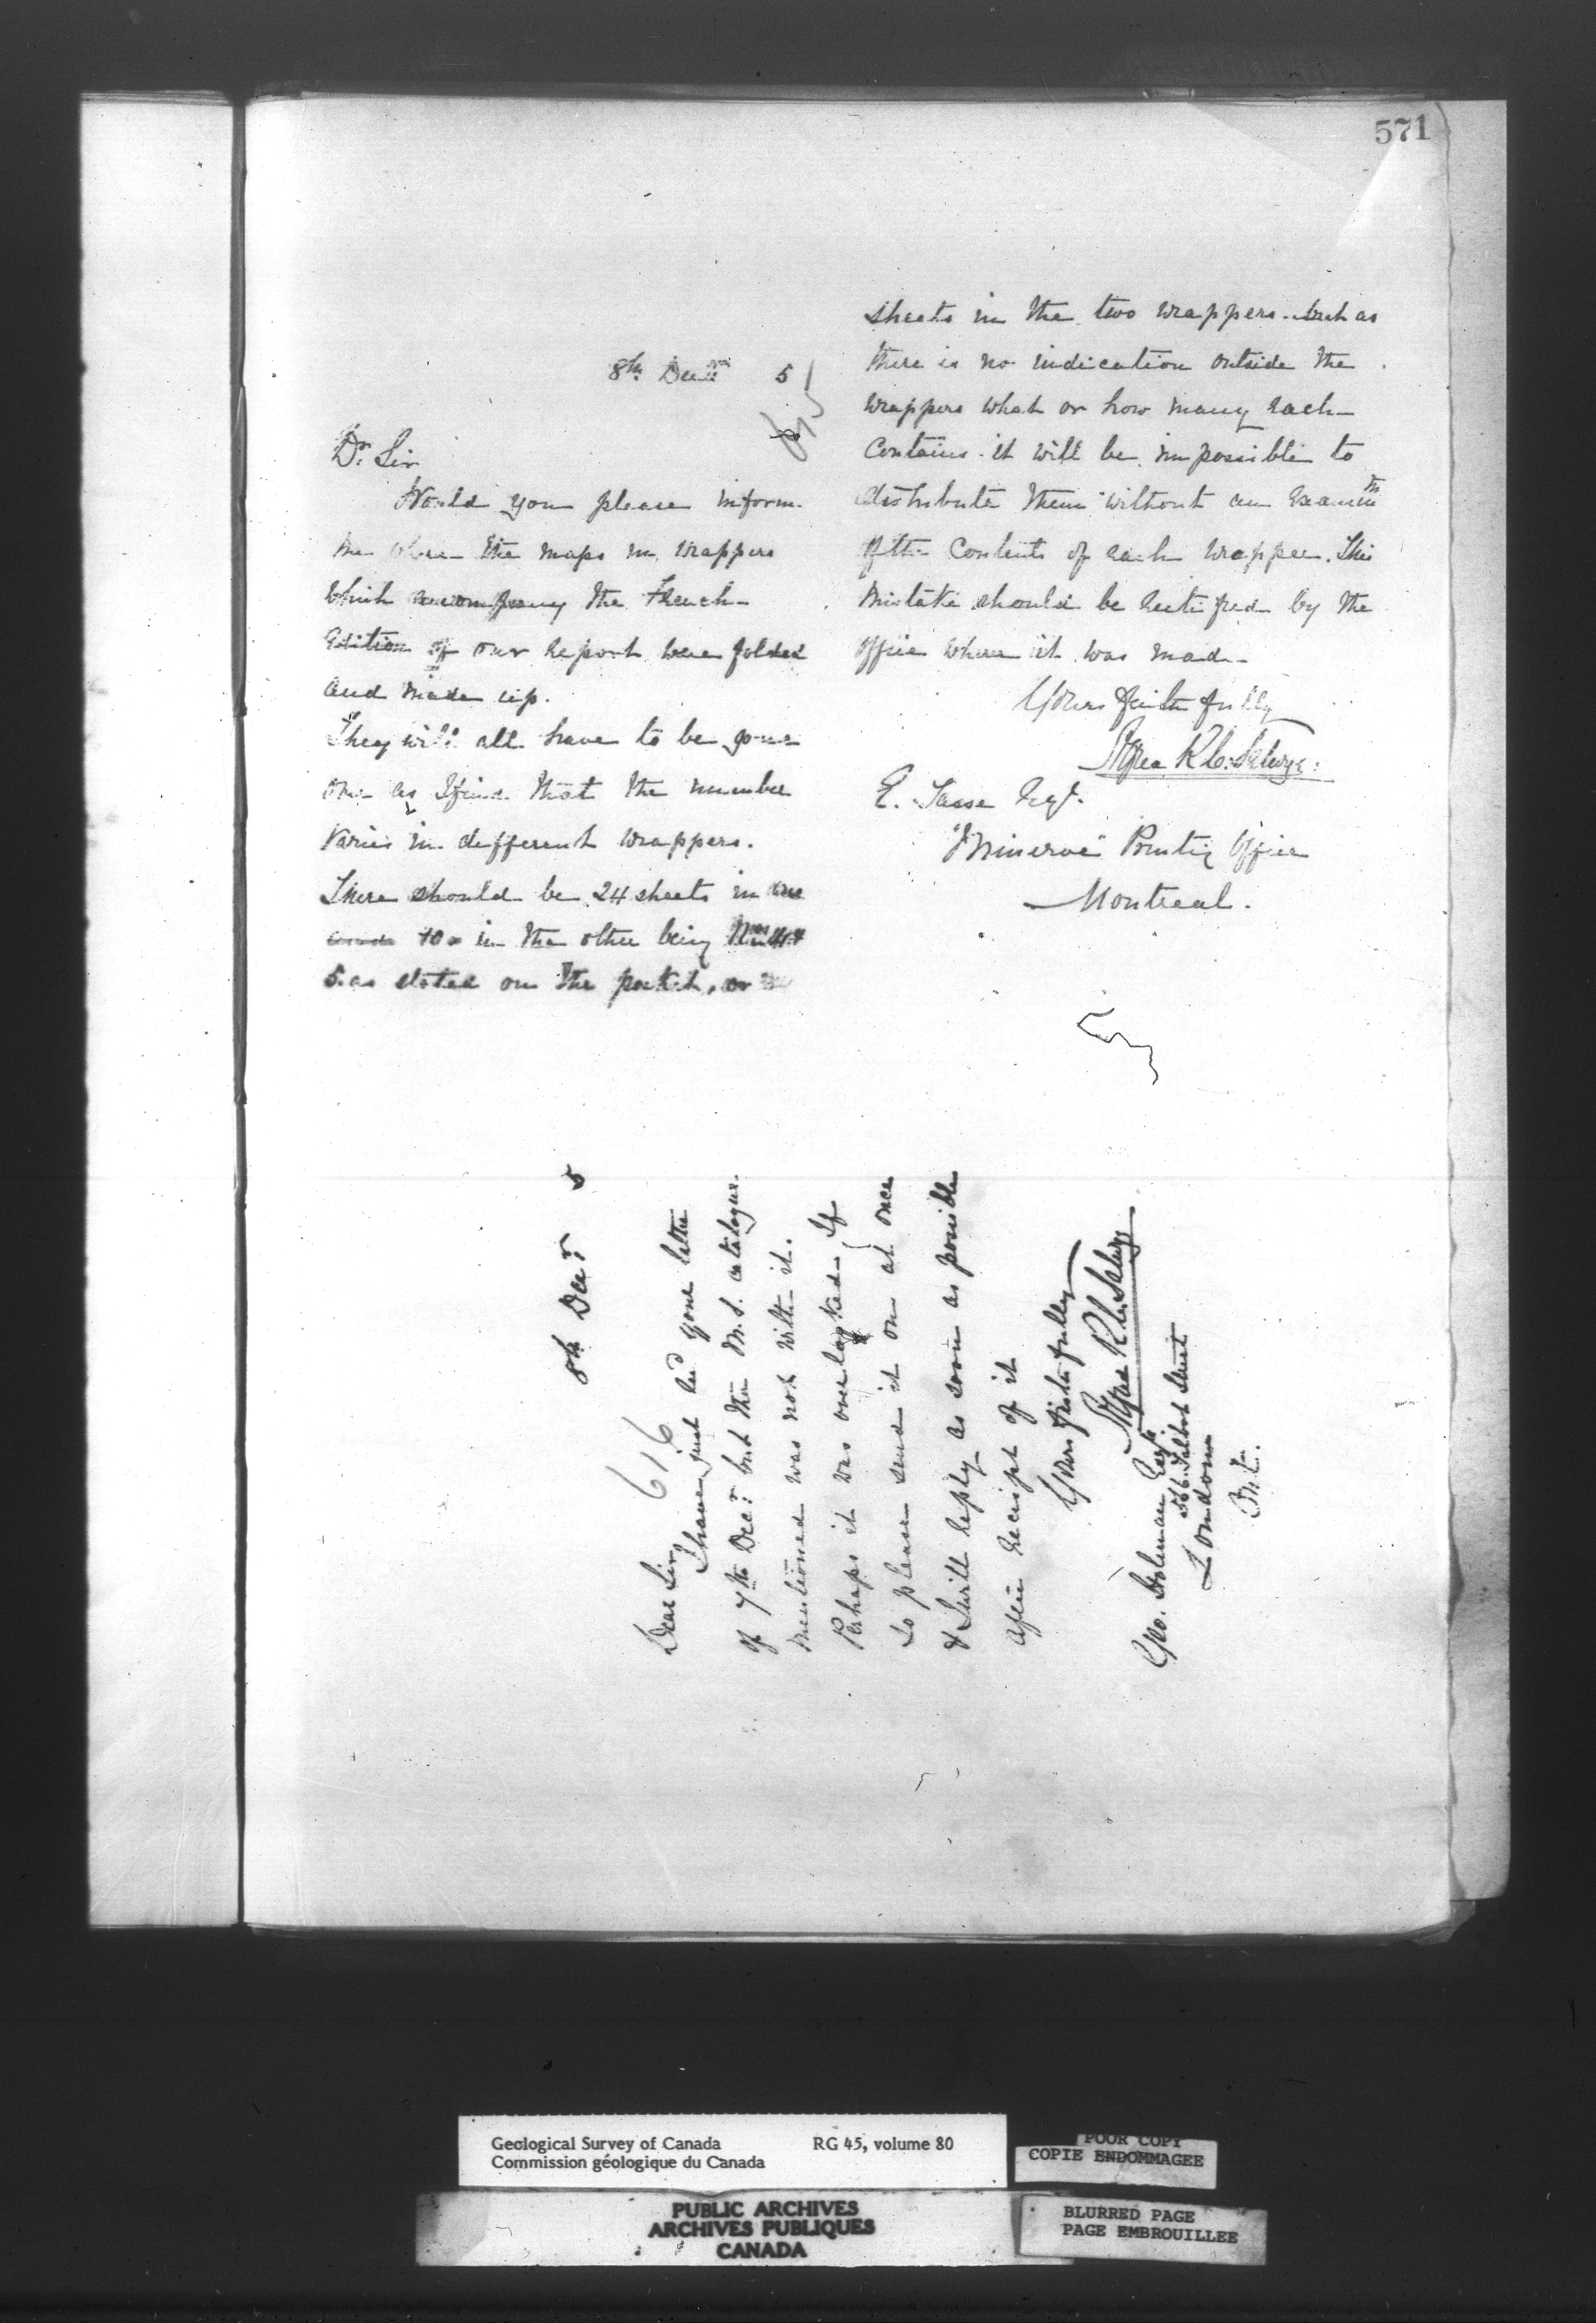 571
8th Decr 5
615
Dr. Sir
Would you please inform
me where the maps in wrappers
which accompany the French
Edition of our report were folded
and made up.
They will all have to be gone
over as I find that the number
varies in different wrappers.
There should be 24 sheets in one
10 in the other being
5. as stated on the packet, or
sheets in the two wrappers. but as
there is no indication outside the
wrappers what or how many each
contains it will be impossible to
distribute them without an Examintn
of the contents of each wrapper. This
mistake should be rectified by the
office where it was made
Yours faithfully
Alfred R. C. Selwyn.
E. Tasse Esqr.
"Minerve" Printing Office
Montreal.
8th Decr. 5
616
Dear Sir
I have just recd your letter
of 7th Decr. but the M.S. catalogue.
mentioned was not with it.
Perhaps it was overlooked. If
so please send it on at once
& I will reply as soon as possible
after receipt of it
Yours faithfully
Alfred R. C. Selwyn
Geo. Holman Esqr.
Talbot Street
London
Ont.
Geological Survey of Canada RG 45, volume 80
Commission géologique du Canada
POOR COPY
COPIE ENDOMMAGEE
PUBLIC ARCHIVES
ARCHIVES PUBLIQUES
CANADA
BLURRED PAGE
PAGE EMBROUILLEE